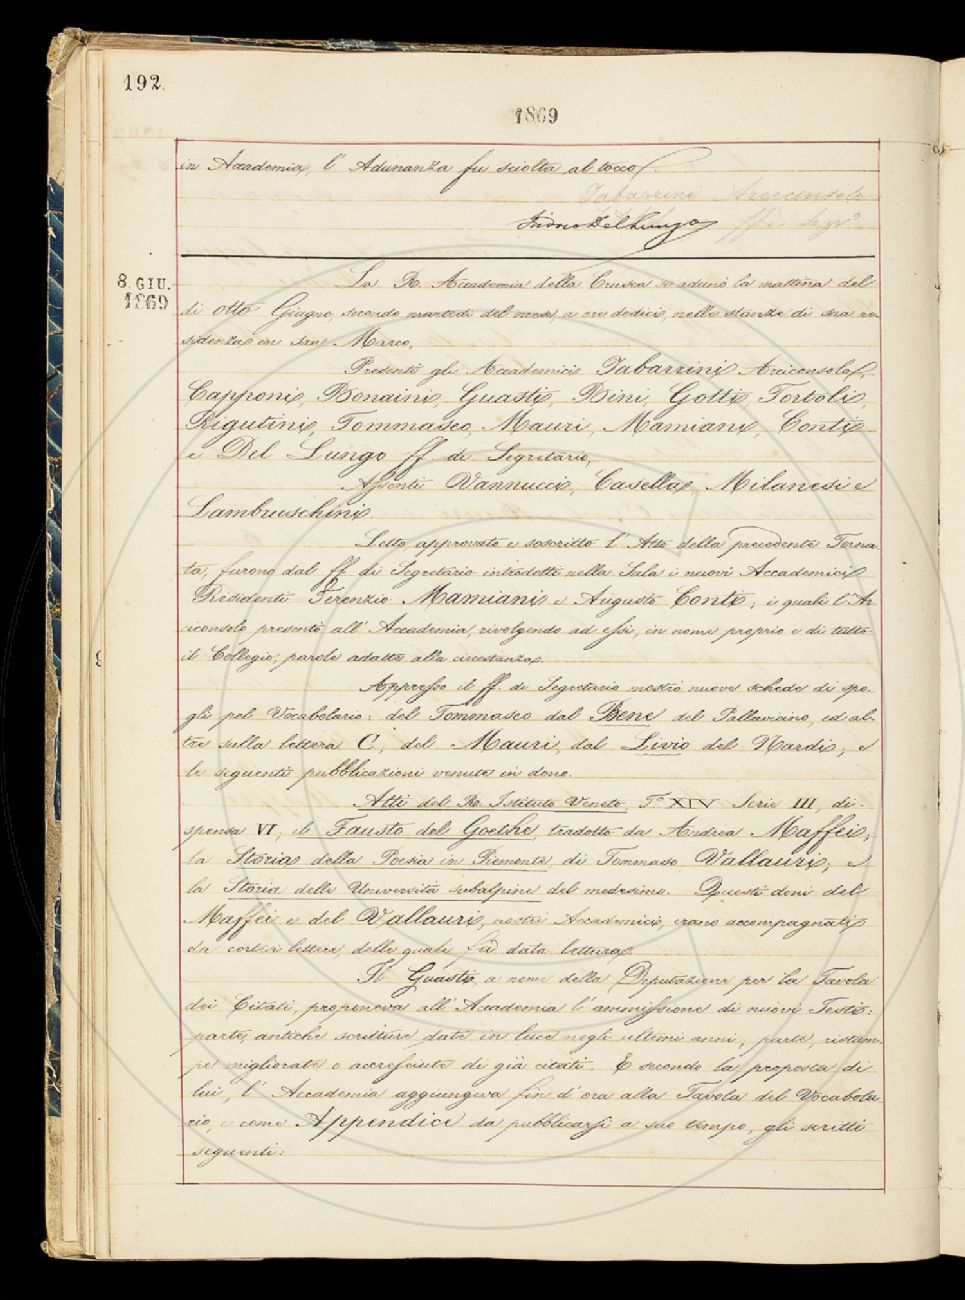 192.
1869
in Accademia, l'Adunanza fu sciolta al tocco.
Tabarrini Arciconsolo
Isidoro Del Lungo ff di Segr.º
8. GIU.
1869
La R. Accademia della Crusca si adunò la mattina del
dì otto Giugno, secondo martedì del mese, a ore dodici, nelle stanze di sua re-
sidenza in San Marco.
Presenti gli Accademici Tabarrini Arciconsolo,
Capponi, Bonaini, Guasti, Bini, Gotti, Tortoli,
Rigutini, Tommaseo, Mauri, Mamiani, Conti
e Del Lungo ff di Segretario,
Assenti Vannucci, Casella, Milanesi e
Lambruschini.
Letto, approvato e soscritto l'Atto della precedente Torna-
ta, furono dal ff di Segretario introdotti nella Sala i nuovi Accademici
Residenti Terenzio Mamiani e Augusto Conti; i quali l'Ar-
ciconsolo presentò all'Accademia, rivolgendo ad essi, in nome proprio e di tutto
il Collegio, parole adatte alla circostanza.
Appresso il ff. di Segretario mostrò nuove schede di spo-
gli pel Vocabolario: del Tommaseo dal Bene del Pallavicino, ed al-
tre sulla lettera C; del Mauri dal Livio del Nardi; e
le seguenti pubblicazioni venute in dono.
Atti del R. Istituto Veneto, T.º XIV Serie III, di-
spensa VI; il Fausto del Goethe tradotto da Andrea Maffei;
la Storia della Poesia in Piemonte, di Tommaso Vallauri; e
la Storia delle Università subalpine del medesimo. Questi doni del
Maffei e del Vallauri, nostri Accademici, erano accompagnati
da cortesi lettere, delle quali fu data lettura.
Il Guasti, a nome della Deputazione per la Tavola
dei Citati, proponeva all'Accademia l'ammissione di nuovi Testi:
parte, antiche scritture date in luce negli ultimi anni; parte, ristam-
pe migliorate o accresciute di già citati. E secondo la proposta di
lui, l'Accademia aggiungeva fin d'ora alla Tavola del Vocabola-
rio, e come Appendice da pubblicarsi a suo tempo, gli scritti
seguenti: